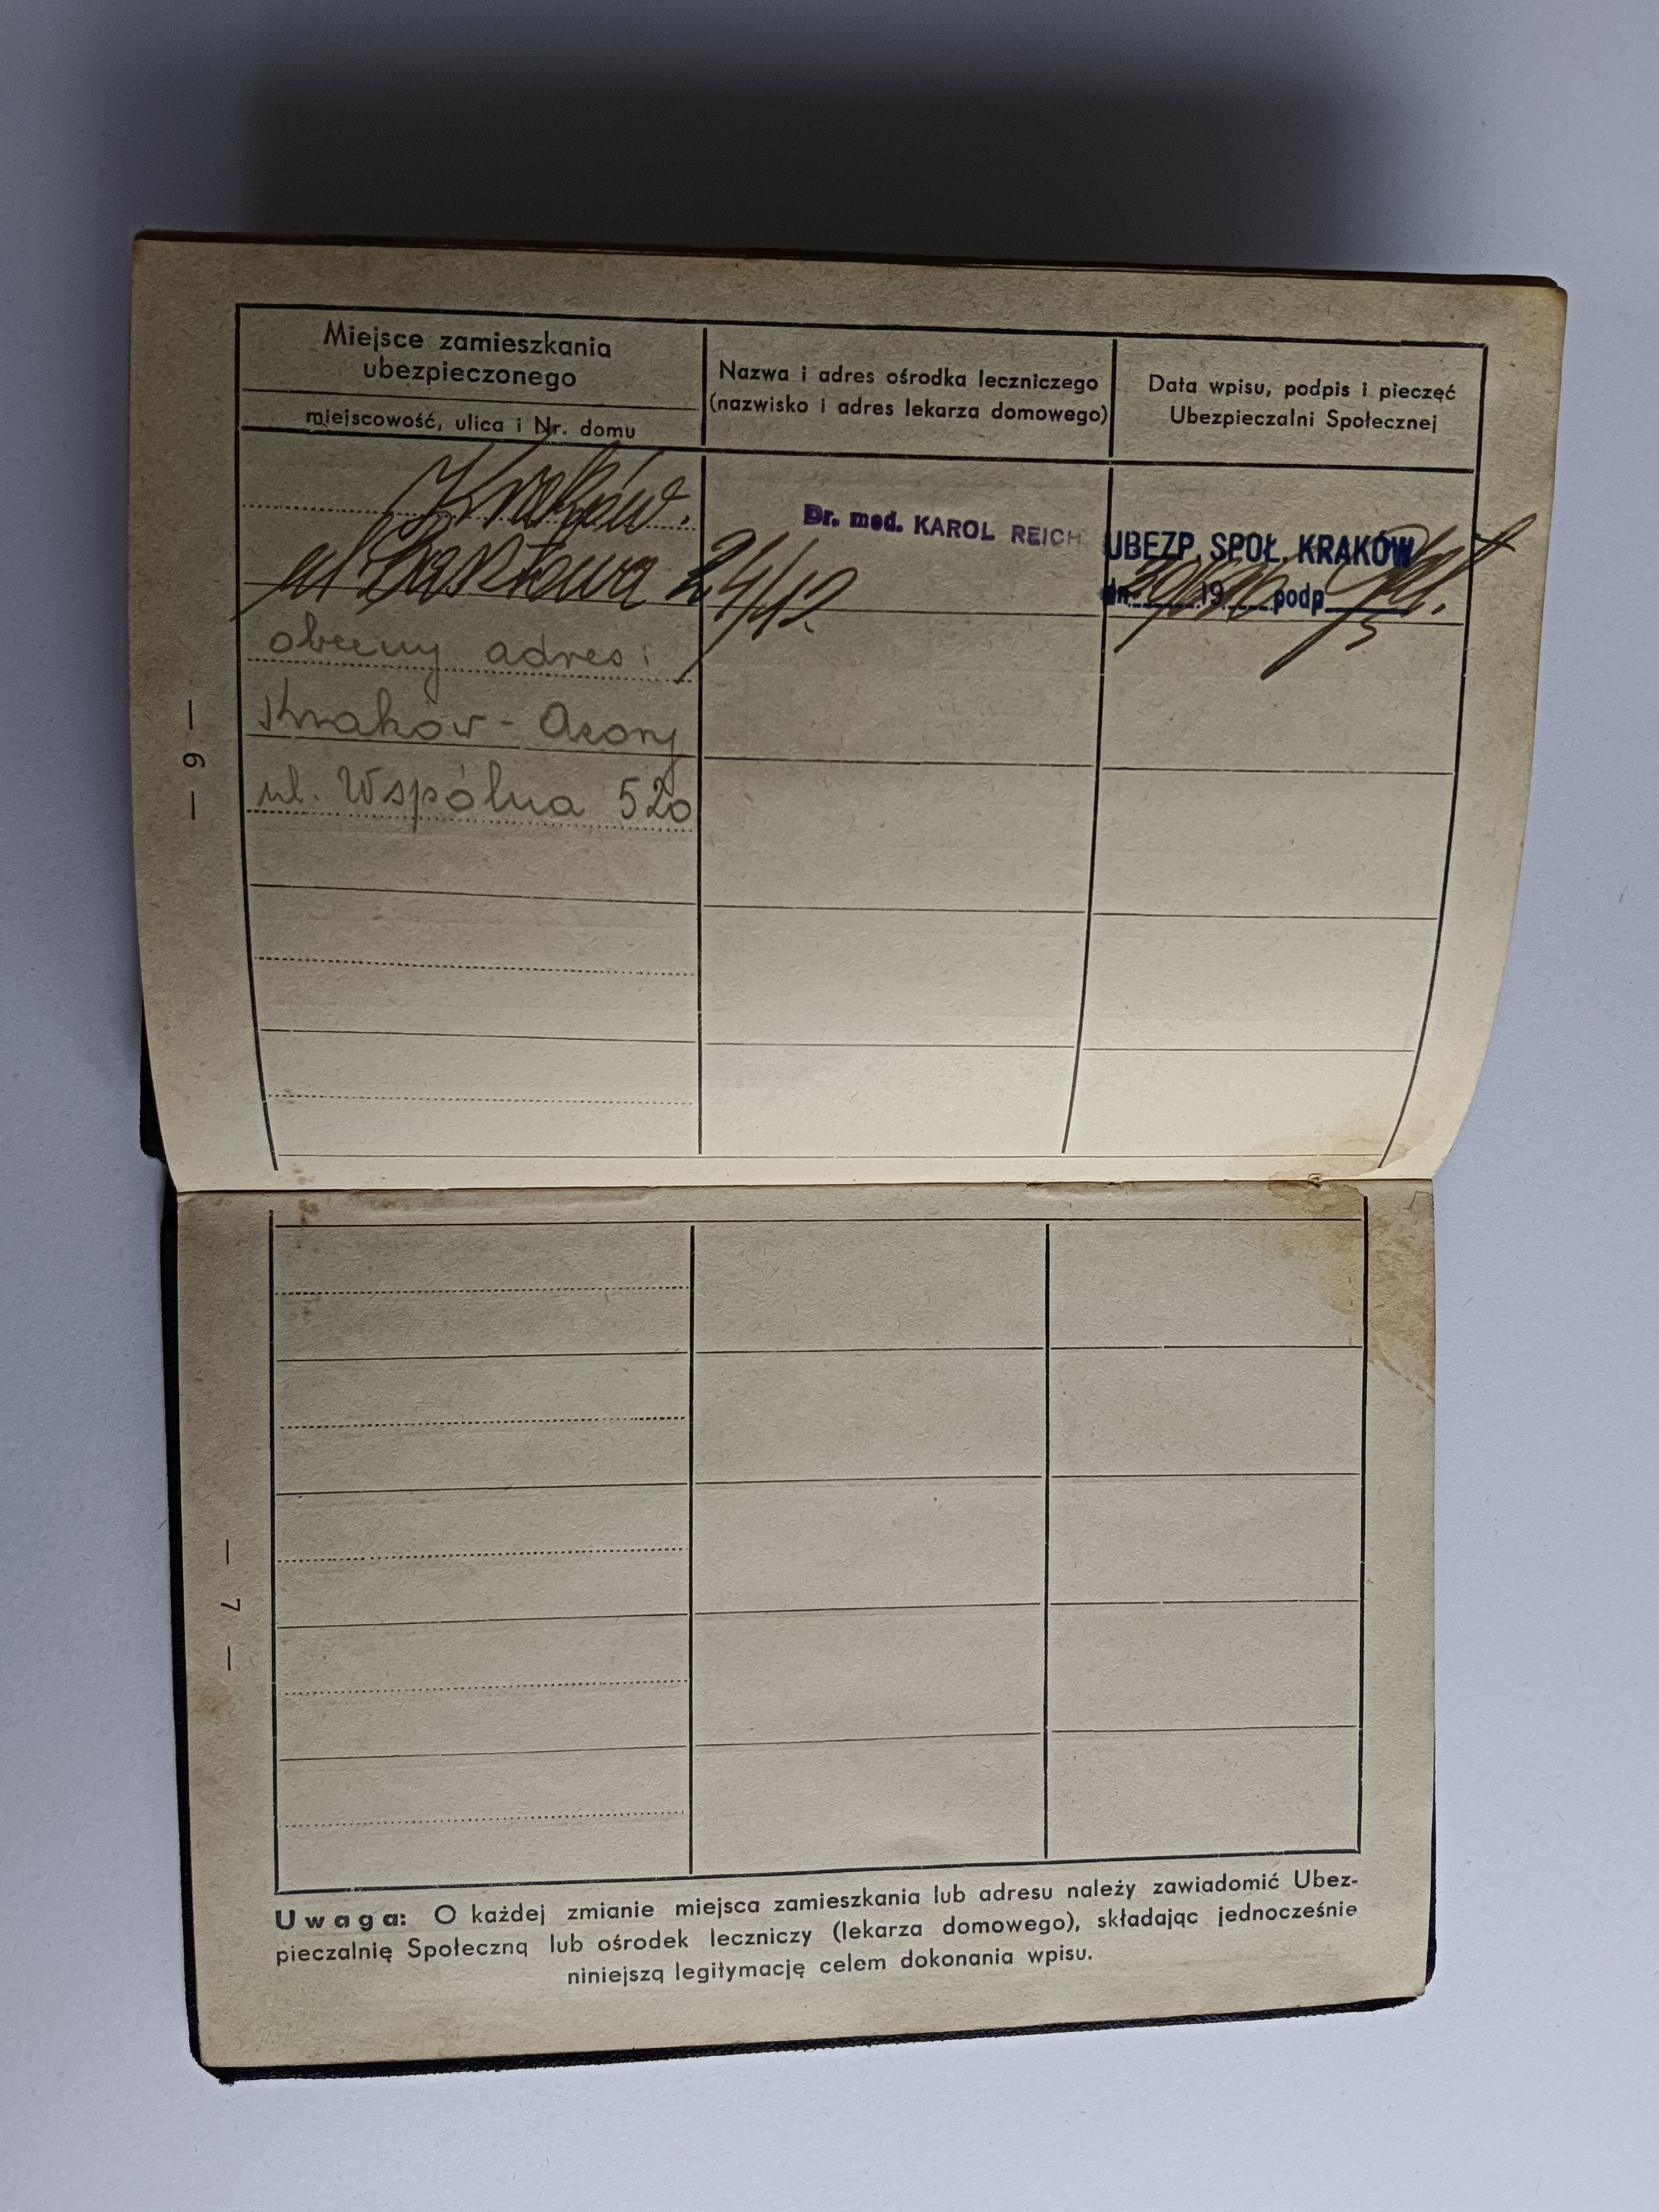 Miejsce zamieszkania
ubezpieczonego
miejscowość, ulica i Nr. domu
Nazwa i adres ośrodka leczniczego
(nazwisko i adres lekarza domowego)
Data wpisu, podpis i pieczęć
Ubezpieczalni Społecznej
Kraków.
ul 24/12.
Dr. med. KAROL REICH
UBEZP. SPOŁ. KRAKÓW
dn. 19 podp
obecny adres:
Kraków - Azory
ul. Wspólna 520
— 6 —
— 7 —
Uwaga: O każdej zmianie miejsca zamieszkania lub adresu należy zawiadomić Ubez-
pieczalnię Społeczną lub ośrodek leczniczy (lekarza domowego), składając jednocześnie
niniejszą legitymację celem dokonania wpisu.